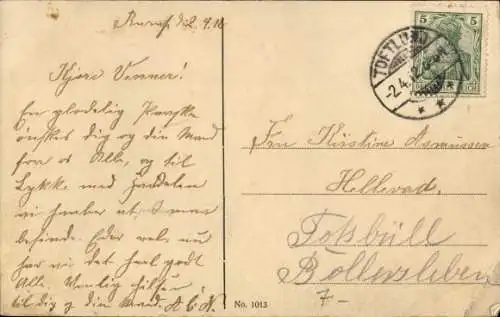 d. 2.4.10
Kjære Venner!
En glædelig Paaske
önskes dig og din Mand
fra os Alle, og til
Lykke med Handelen
vi haaber at I maa
befinde Eder vel, nu
har vi det heel godt
Alle. Venlig hilsen
til dig og din Mand. A. C. N.
5
TOFTLUND
-2.4.
Fru Kirstine Asmussen
Hellevad.
Toksbüll
Bollersleben
7-
No. 1013